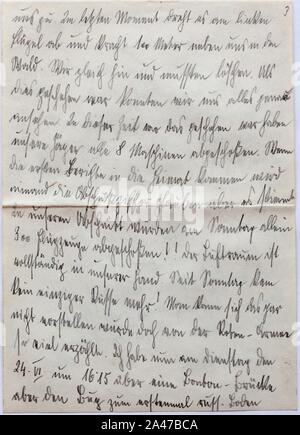 3
uns zu. Im letzten Moment dreht es am linken
Flügel ab und kracht 100 Meter neben uns in den
Wald. Wir gleich hin und mussten löschen. Als
dies geschehen war konnten wir uns alles genau
ansehen. In dieser Zeit wo das geschehen war haben
unsere Jäger alle 8 Maschinen abgeschossen. Wenn
die ersten Berichte in die Heimat kommen wird
niemand die es stimmt
in unseren Abschnitt wurden am Sonntag allein
300 Flugzeuge abgeschossen!! Der Luftraum ist
vollständig in unserer Hand. Seit Sonntag kam
kein einziger Russe mehr! Man kann sich das gar
nicht vorstellen wurde doch von der Roten-Armee
so viel erzählt. Ich habe nun am Dienstag den
24.VI um 16 15 über eine Ponton-Brücke
über den Bug zum erstenmal russ. Boden
alamy
Image ID: 2A47BCA
www.alamy.com